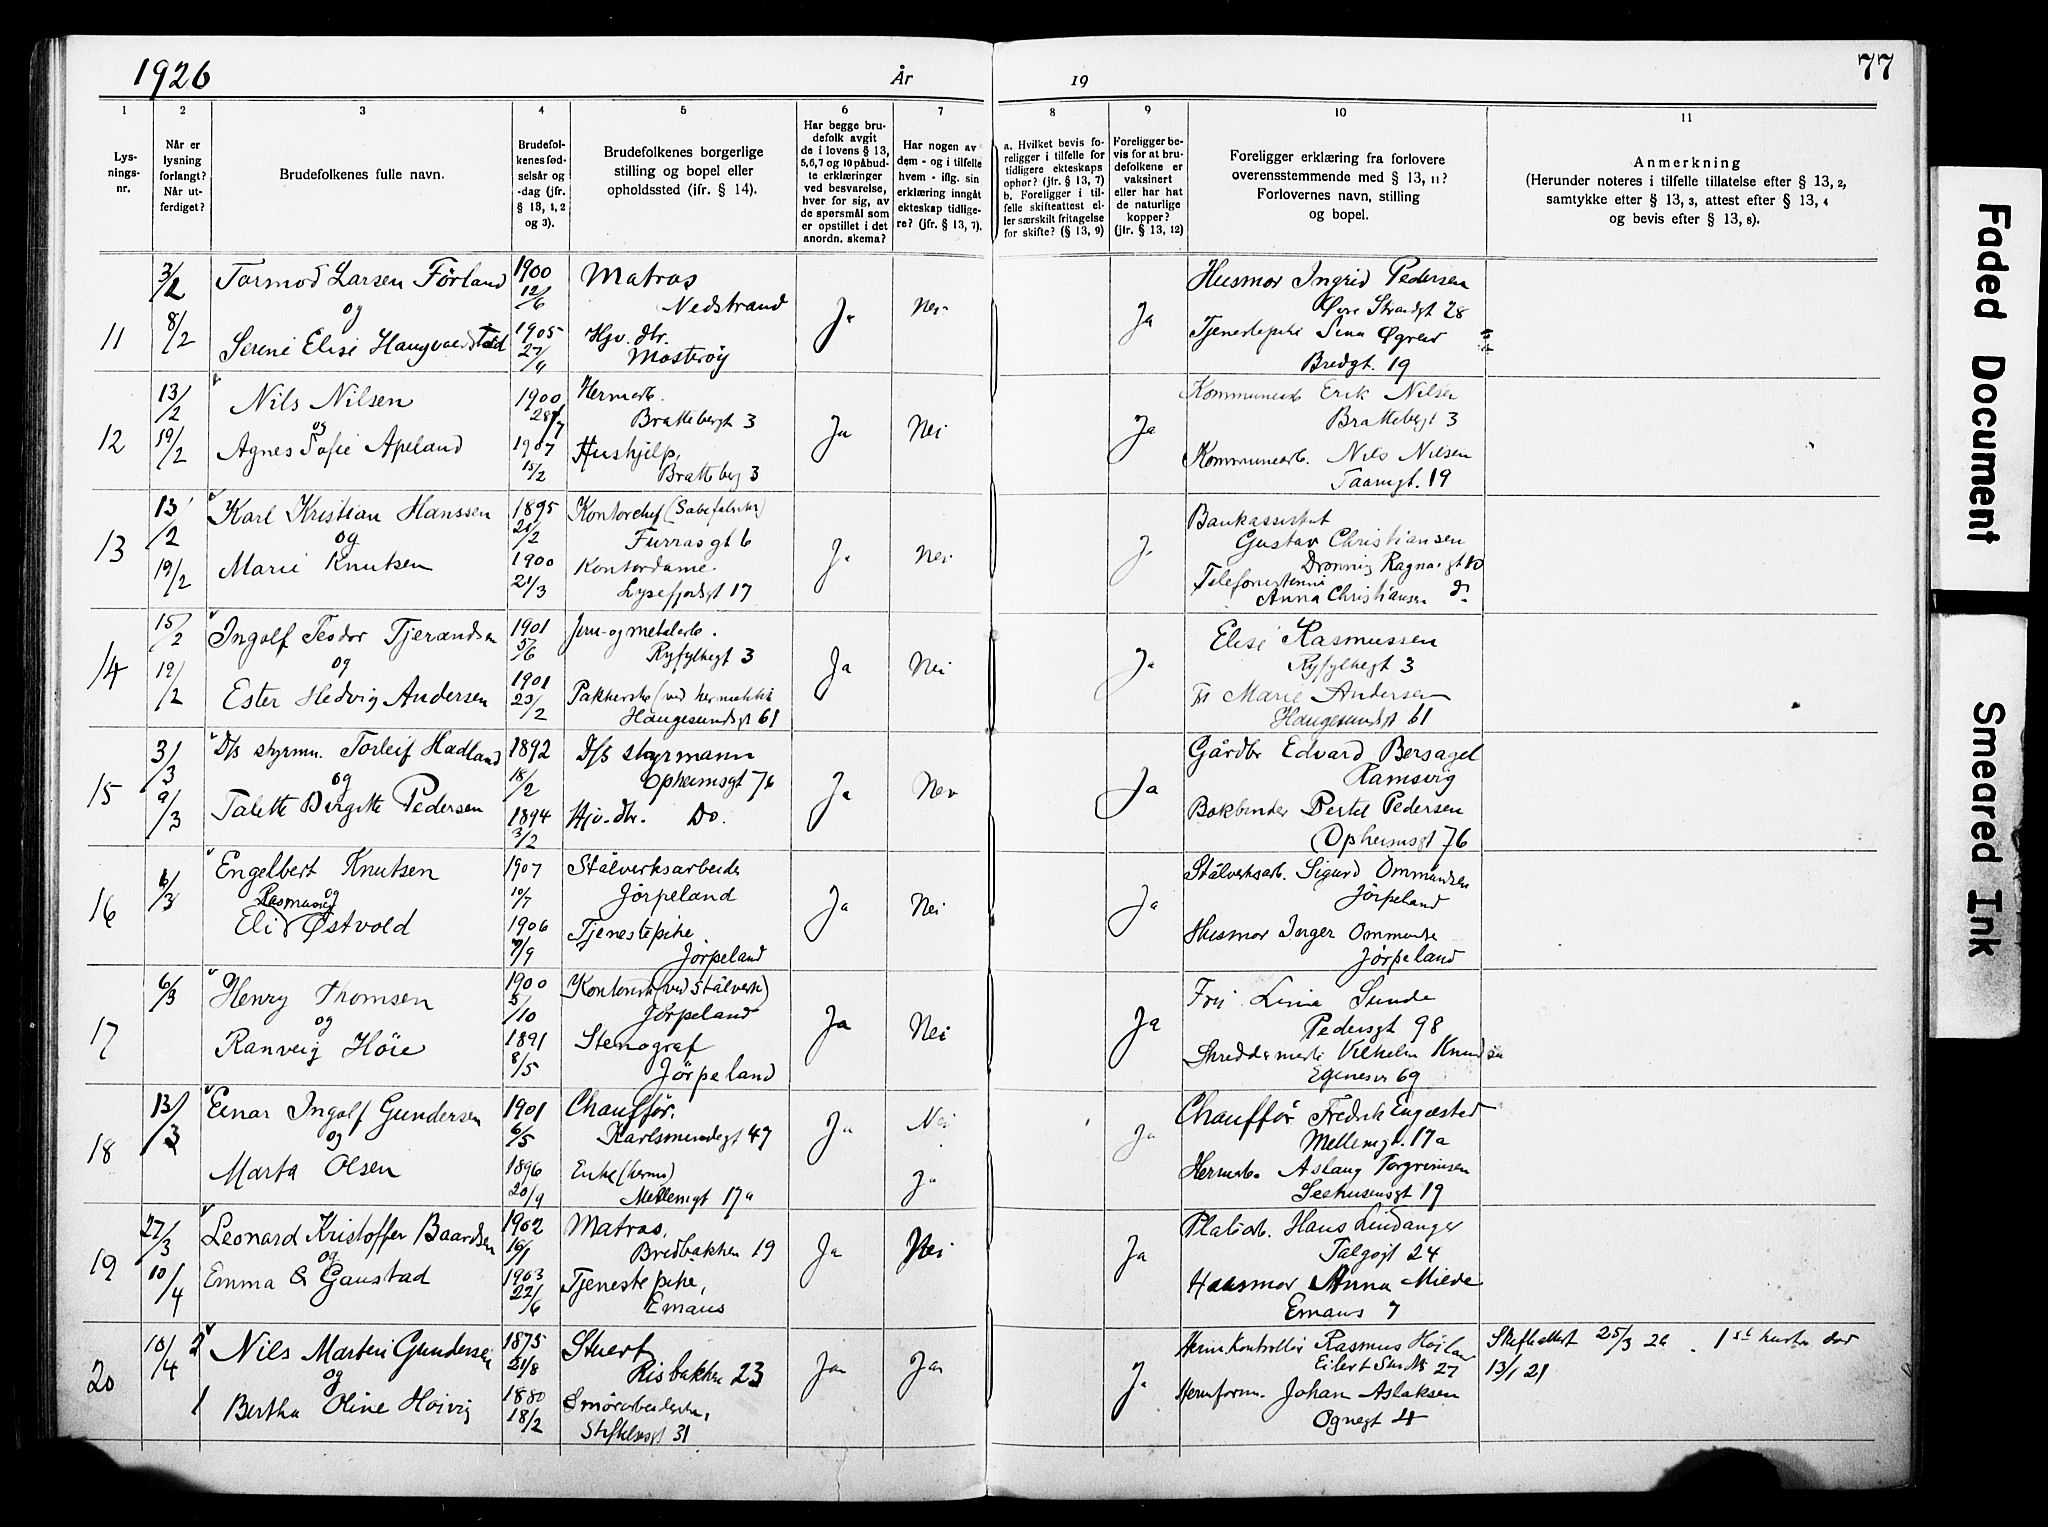 1926
År
19
77
1 2 3 4 5 6 7 8 9 10 11
Lysningsnr.
Når er lysning forlangt? Når utferdiget?
Brudefolkenes fulle navn.
Brudefolkenes fødselsår og -dag (jfr. § 13, 1, 2 og 3).
Brudefolkenes borgerlige stilling og bopel eller opholdssted (jfr. § 14).
Har begge brudefolk avgit de i lovens § 13, 5,6,7 og 10 påbudte erklæringer ved besvarelse, hver for sig, av de spørsmål som er opstillet i det anordn. skema?
Har nogen av dem - og i tilfelle hvem - iflg. sin erklæring inngått ekteskap tidligere? (jfr. § 13, 7).
a. Hvilket bevis foreligger i tilfelle for tidligere ekteskaps ophør? (jfr. § 13, 7) b. Foreligger i tilfelle skifteattest eller særskilt fritagelse for skifte? (§ 13, 9)
Foreligger bevis for at brudefolkene er vaksinert eller har hat de naturlige kopper? (jfr. § 13, 12)
Foreligger erklæring fra forlovere overensstemmende med § 13, 11? Forlovernes navn, stilling og bopel.
Anmerkning
(Herunder noteres i tilfelle tillatelse efter § 13, 2, samtykke efter § 13, 3, attest efter § 13, 4 og bevis efter § 13, 8).
11
3/2
8/2
Tormod Larsen Førland
og
Serene Elise Haugvaldstad
1900
12/6
1905
27/4
Matros
Nedstrand
Hjv. dtr.
Mosterøy
Ja
Nei
Ja
Husmor Ingrid Pedersen
Øvre Strandgt 28
Tjenestepike Sina
Bredgt. 19
12
13/2
19/2
Nils Nilsen
og
Agnes Sofie Apeland
1900
28/7
1907
15/2
Hermarb.
Brattebergt 3
Hushjelp,
Bratteberg 3
Ja
Nei
Ja
Kommunearb Erik Nilsen
Brattebergt 3
Kommunearb. Nils Nilsen
Taarngt. 19
13
13/2
19/2
Karl Kristian Hanssen
og
Marie Knutsen
1895
21/2
1900
21/3
Kontorchef
Furrasgt 6
Kontordame
Lysefjordgt 17
Ja
Nei
J.
Bankassistent
Gustav Christiansen
Dronning Ragna. gt 10
Telefonistinne
Anna Christiansen do
14
15/2
19/2
Ingolf Teodor Tjerandsen
og
Ester Hedvig Andersen
1901
5/6
1901
23/2
Jern- og metalarb.
Ryfylkegt 3
Pakkerske (ved hermetikk
Haugesundsgt 61
Ja
Nei
Ja
Elise Rasmussen
Ryfylkegt 3
Fr Marie Andersen
Haugesundsgt 61
15
3/3
9/3
D/s styrm. Torleif Hadland
og
Talette Birgitte Pedersen
1892
18/2
1894
3/2
D/s styrmann
Opheimsgt 76
Hjv. dtr. Do.
Ja
Nei
Ja
Gårdbr Edvard Bersagel
Ramsvig
Bokbinder Bertel Pedersen
Opheimsgt 76
16
6/3
Engelbert Knutsen
og
Rasmusdtr
Eli Østvold
1907
10/7
1906
7/9
Stålverksarbeider
Jørpeland
Tjenestepike
Jørpeland
Ja
Nei
Ja
Stålverksarb. Sigurd Ommundsen
Jørpeland
Husmor Inger Ommundsen
Jørpeland
17
6/3
Henry Thomsen
og
Ranveig Höie
1900
5/10
1891
8/5
Kontorist (ved Stålverk)
Jørpeland
Stenograf
Jørpeland
Ja
Nei
Ja
Frk Lina Sunde
Pedersgt 98
Skreddermester Vilhelm Knudsen
Egenesv 69
18
13/3
Einar Ingolf Gundersen
og
Marta Olsen
1901
6/5
1896
20/9
Chauffør.
Karlsmindegt 47
Enke (herm)
Mellemgt 17a
Ja
Nei
Ja
Ja
Chauffør Fredrik Engøsted
Mellemgt. 17a
Hermarb. Aslaug Torgrimsen
Seehusensgt 19
19
27/3
10/4
Leonard Kristoffer Baardsen
og
Emma G Gaustad
1902
16/1
1903
22/6
Matros,
Bredbakken 19
Tjenestepike,
Emaus
Ja
Nei
Ja
Platearb. Hans Lindanger
Talgøgt 24
Husmor Anna Milde
Emaus 7
20
10/4
2 Nils Martin Gundersen
og
1 Bertha Oline Høivig
1875
21/8
1880
18/2
Stuert
Risbakken 23
Smørarbeiderske,
Stiftelsesgt 31
Ja
Ja
Ja
Herm Kontrollør Rasmus Høiland
Eilert Sundts 27
Hermform. Johan Aslaksen
Ognegt 4
Skifteattest 25/3 26. 1ste hustru død
13/1 21
Faded Document
Smeared Ink